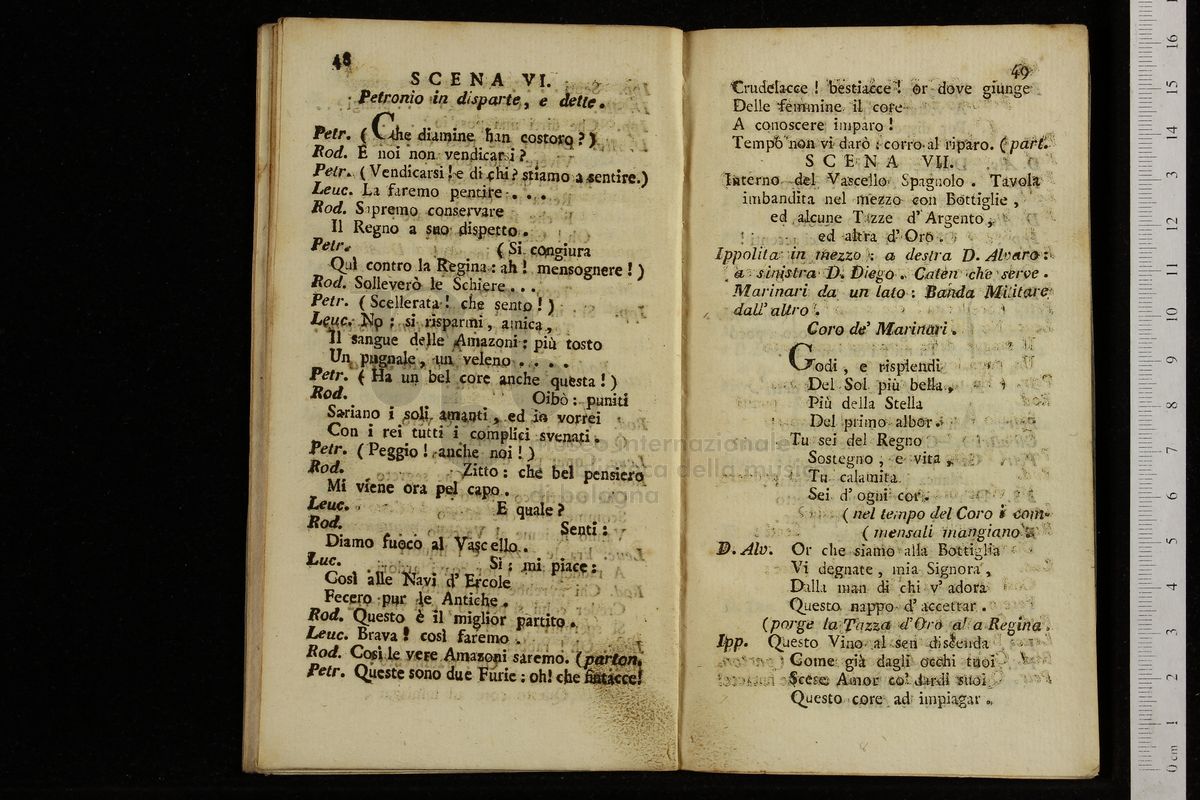 48
SCENA VI.
Petronio in disparte, e dette.
Petr. ( Che diamine han costoro ? )
Rod. E noi non vendicarsi ?
Petr. ( Vendicarsi ! e di chi ? stiamo a sentire.)
Leuc. La faremo pentire . . .
Rod. Sapremo conservare
Il Regno a suo dispetto .
Petr. ( Si congiura
Quì contro la Regina : ah ! mensognere ! )
Rod. Solleverò le Schiere . . .
Petr. ( Scellerata ! che sento ! )
Leuc. No ; si risparmi , amica ,
Il sangue delle Amazoni : più tosto
Un pugnale , un veleno . . . .
Petr. ( Ha un bel core anche questa ! )
Rod. Oibò : puniti
Sariano i soli amanti , ed io vorrei
Con i rei tutti i complici svenati .
Petr. ( Peggio ! anche noi ! )
Rod. Zitto : che bel pensiero
Mi viene ora pel capo .
Leuc. E quale ?
Rod. Senti :
Diamo fuoco al Vascello .
Luc. Si ; mi piace :
Così alle Navi d' Ercole
Fecero pur le Antiche .
Rod. Questo è il miglior partito .
Leuc. Brava ! così faremo .
Rod. Così le vere Amazoni saremo. (parton.
Petr. Queste sono due Furie : oh! che
49
Crudelacce ! bestiacce ! or dove giunge
Delle femmine il core
A conoscere imparo !
Tempo non vi darò : corro al riparo. ( part.
SCENA VII.
Interno del Vascello Spagnolo . Tavola
imbandita nel mezzo con Bottiglie ,
ed alcune Tazze d' Argento ,
ed altra d' Oro .
Ippolita in mezzo : a destra D. Alvaro :
a sinistra D. Diego . Caten che serve .
Marinari da un lato : Banda Militare
dall' altro .
Coro de' Marinari .
Godi , e risplendi
Del Sol più bella ,
Più della Stella
Del primo albor .
Tu sei del Regno
Sostegno , e vita ,
Tu calamita
Sei d' ogni cor .
( nel tempo del Coro i com-
( mensali mangiano .
D. Alv. Or che siamo alla Bottiglia
Vi degnate , mia Signora ,
Dalla man di chi v' adora
Questo nappo d' accettar .
(porge la Tazza d'Oro al a Regina .
Ipp. Questo Vino al sen discenda
Come già dagli occhi tuoi
Scese Amor co' dardi suoi
Questo core ad impiagar .
internazionale
della musica
di bologna
0 cm 1 2 3 4 5 6 7 8 9 10 11 12 13 14 15 16